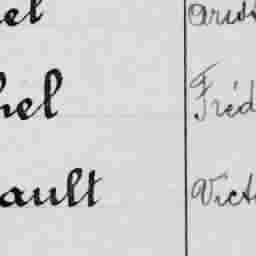 el Arist
hel Fréd
ault Victo